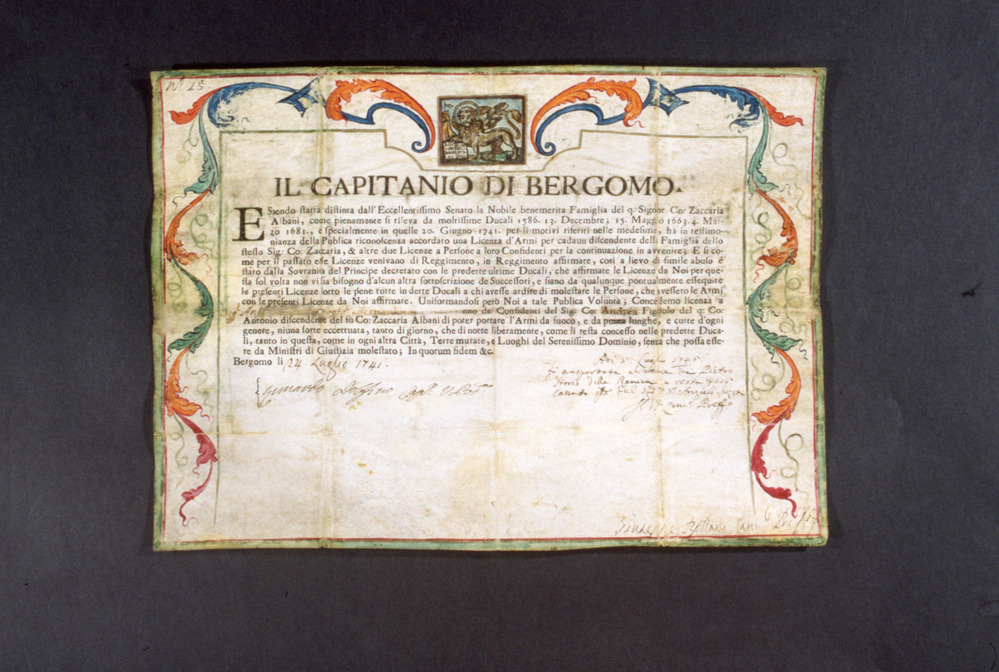 No 15
IL CAPITANIO DI BERGOMO.
ESsendo statta distinta dall'Eccellentissimo Senato la Nobile benemerita Famiglia del q: Signor Co: Zaccaria
Albani, come pienamente si rileva da moltissime Ducali 1586. 13. Decembre; 15. Maggio 1663. 4. Mar-
zo 1681., e specialmente in quelle 20. Giugno 1741. per li motivi riferiti nelle medesime, hà in testimo-
nianza della Publica riconoscenza accordato una Licenza d'Armi per cadaun discendente della Famiglia dello
stesso Sig. Co: Zaccaria, & altre due Licenze a Persone a loro Confidenti per la continuazione in avvenire; E si co-
me per il passato esse Licenze venivano di Reggimento, in Reggimento affirmate, così a lievo di simile abuso è
stato dalla Sovranità del Principe decretato con le predette ultime Ducali, che affirmate le Licenze da Noi per que-
sta sol volta non vi sia bisogno d'alcun altra sottoscrizione de Successori, e siano da qualunque pontualmente essequite
le presenti Licenze sotto le pene tutte in dette Ducali a chi avesse ardire di molestare le Persone, che avessero le Armi
con le presenti Licenze da Noi affirmate. Uniformandosi però Noi a tale Publica Volontà; Concedemo licenza a
uno de Confidenti del Sig: Co: Andrea Figliolo del q: Co:
Antonio discendente del fù Co: Zaccaria Albani di poter portare l'Armi da fuoco, e da punta lunghe, e curte d'ogni
genere, niuna sorte eccettuata, tanto di giorno, che di notte liberamente, come li resta concesso nelle predette Duca-
li, tanto in questa, come in ogni altra Città, Terre murate, e Luoghi del Serenissimo Dominio, senza che possa esse-
re da Ministri di Giustizia molestato; In quorum fidem &c.
Bergomo li 24 Luglio 1741.
Luglio 1745
della